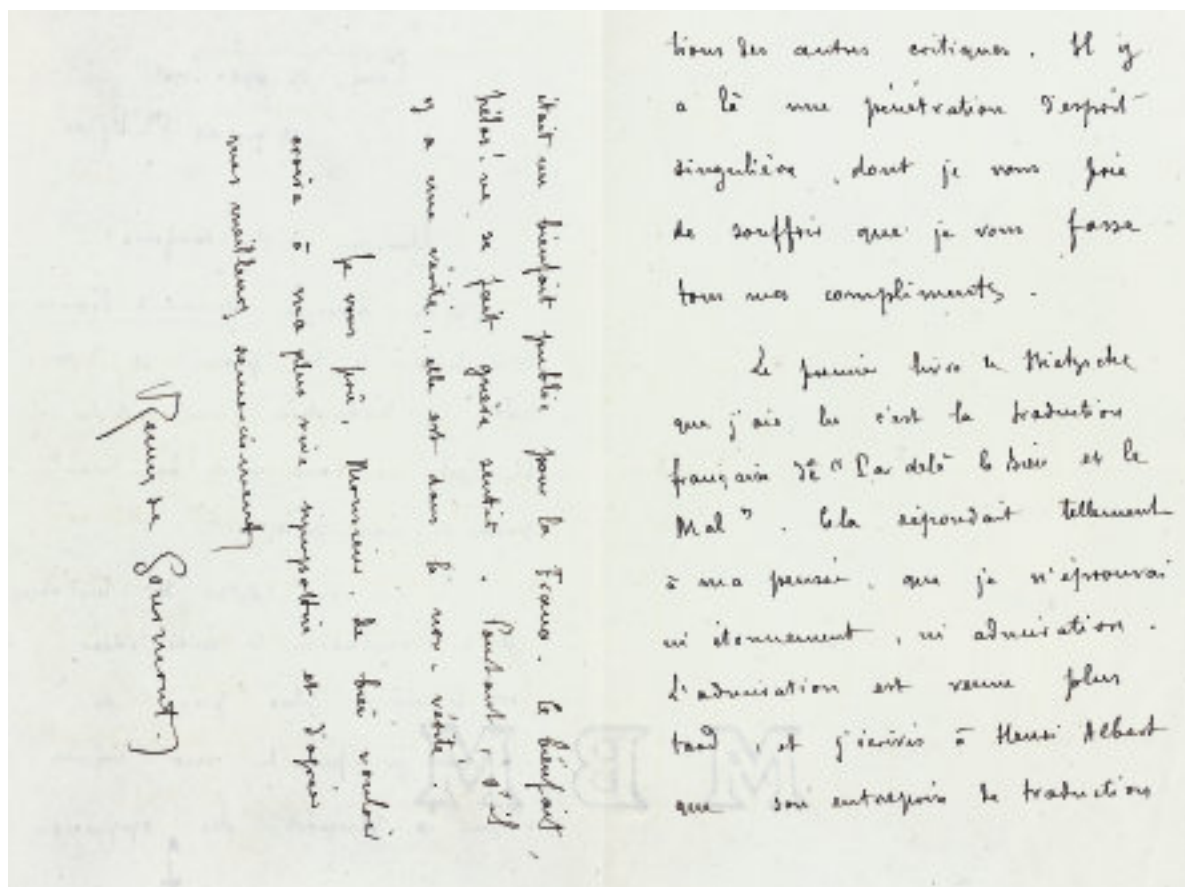 tions des autres critiques. Il y
a là une pénétration d'esprit
singulière, dont je vous prie
de souffrir que je vous fasse
tous mes compliments.
Le premier livre de Nietzsche
que j'aie lu c'est la traduction
française de "Par delà le bien et le
Mal". Cela répondait tellement
à ma pensée, que je n'éprouvai
ni étonnement, ni admiration.
L'admiration est venue plus
tard, et j'écrivis à Henri Albert
que son entreprise de traduction
était un bienfait public pour la France. Ce bienfait,
hélas! ne se fait guère sentir. Pourtant, s'il
y a une vérité, elle est dans la non-vérité.
Je vous prie, Monsieur, de bien vouloir
croire à ma plus vive sympathie et d'agréer
mes meilleurs remerciements
Remy de Gourmont
MBM